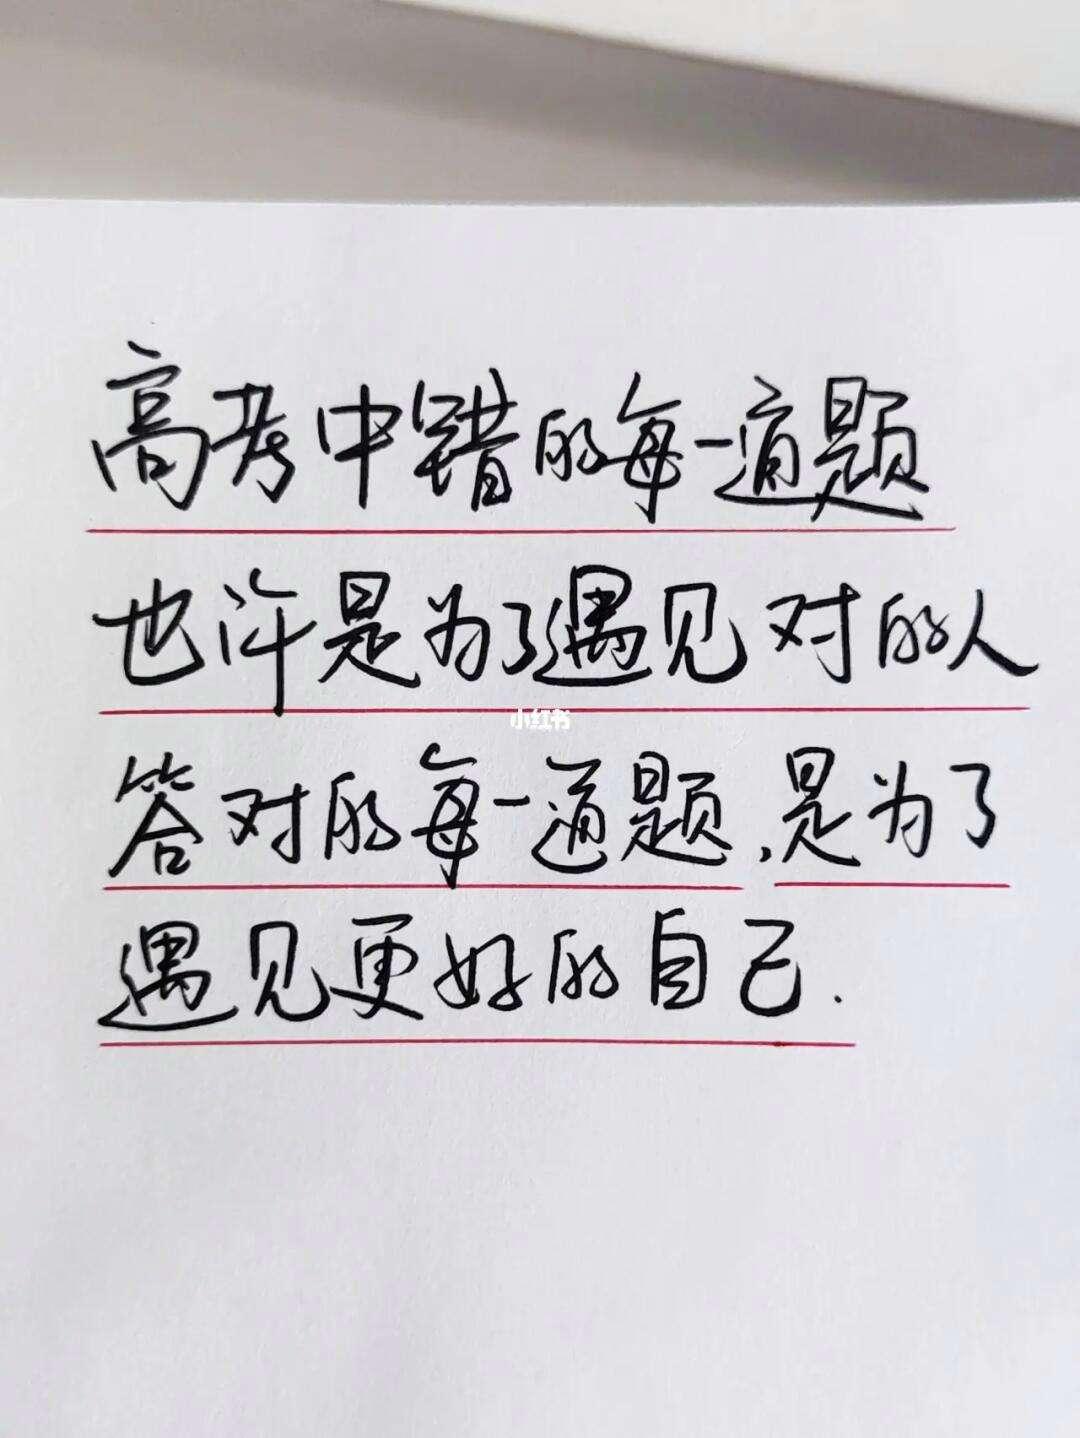 高考中错的每一道题
也许是为了遇见对的人
小红书
答对的每一道题,是为了
遇见更好的自己.